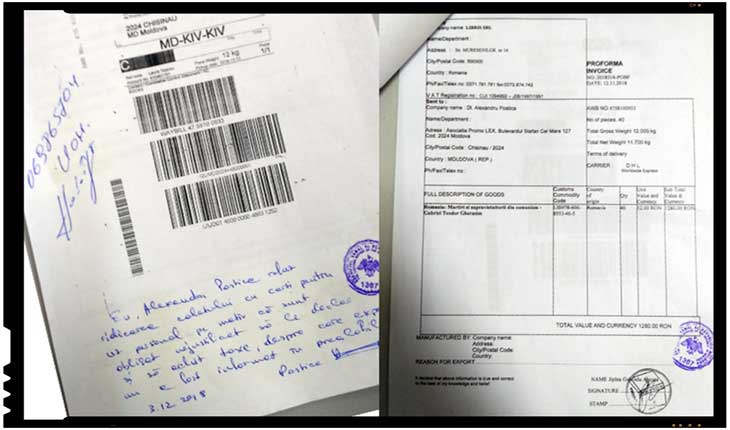 2024 CHISINAU
MD Moldova
MD-KIV-KIV
C
12 kg
1/1
WAYBILL 47 5810 0933
069865804
Eu, Alexandru Postica refuz
ridicarea coletului cu carti pentru
uz personal pe motiv că sunt
obligat nejustificat să le declar
și să achit taxe, despre care
nu a fost informat în prealabil
Postica
3.12.2018
1367
Company name : LIBRIS SRL
Name/Department :
Address : Str. MURESENILOR nr 14
City/Postal Code: 500030
Country : Romania
V A T Registration no :
PROFORMA
INVOICE
DATE: 12.11.2018
Sent to :
Company name : Dl. Alexandru Postica
Name/Department :
Adress : Asociatia Promo LEX, Bulevardul Stefan Cel Mare 127
Cod. 2024 Moldova
City/Postal Code : Chisinau / 2024
Country : MOLDOVA ( REP.)
Ph/Fax/Telno :
No. of pieces: 40
Total Gross Weight 12,000 kg
Total Net Weight 11,700 kg
Terms of delivery
CARRIER : D H L
Worldwide Express
FULL DESCRIPTION OF GOODS
Customs Commodity Code
Country of origin
Qty
Unit Value and Currency
Sub Total Value & Currency
Romania: Martiri si supravietuitorii din comunism -
Gabriel Teodor Gherasim
Romania
40
32.00 RON
1280.00 RON
TOTAL VALUE AND CURRENCY 1280.00 RON
MANUFACTURED BY: Company name:
Address:
City/Postal Code:
Country:
REASON FOR EXPORT
I declare that above information is true and correct
to the best of my knowledge and belief
NAME
SIGNATURE
STAMP